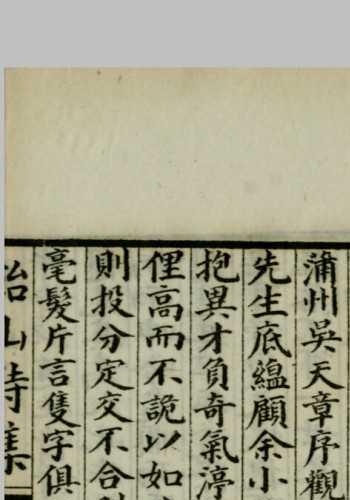 蒲州吳天章序觀
先生底蘊顧余小
抱異才負奇氣渟
俚高而不詭以如
則投分定交不合
毫髮片言隻字俱
飴山詩集